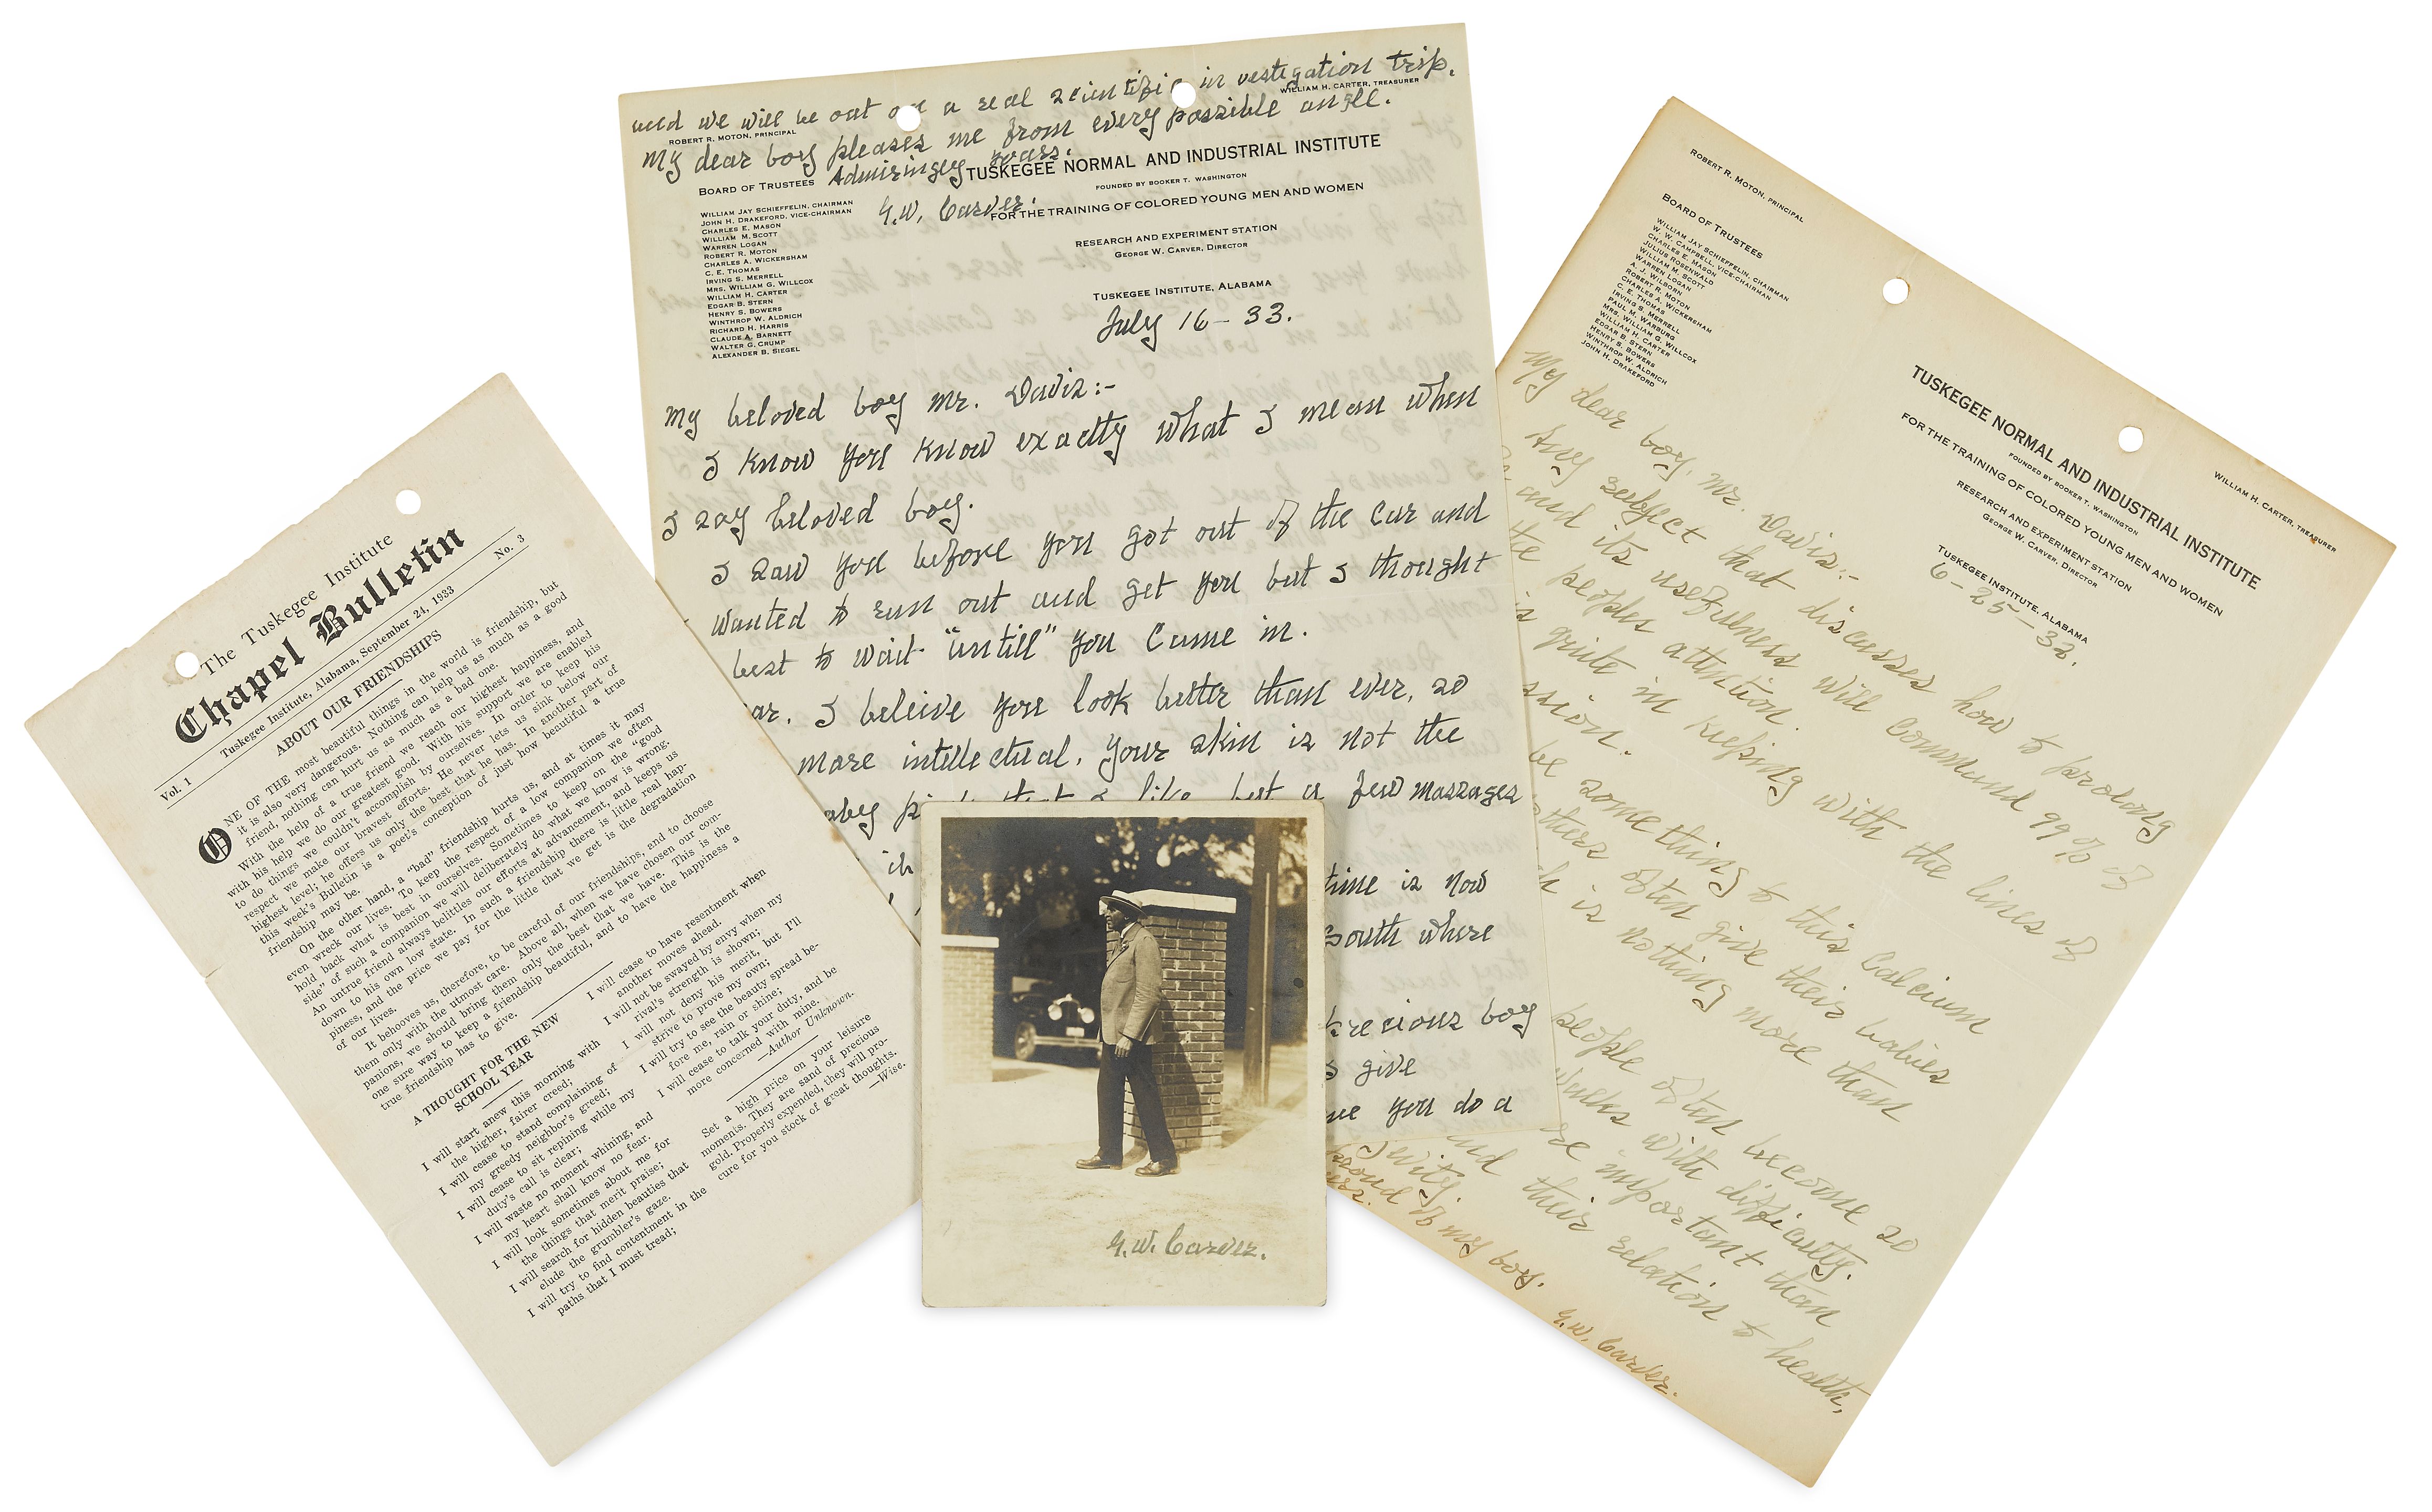 The Tuskegee Institute
Chapel Bulletin
Vol. 1 Tuskegee Institute, Alabama, September 24, 1933 No. 3
ABOUT OUR FRIENDSHIPS
ONE OF THE most beautiful things in the world is friendship, but
it is also very dangerous. Nothing can help us as much as a good
friend, nothing can hurt us as much as a bad one.
With the help of a true friend we reach our highest happiness, and
with his help we do our greatest good. With his support we are enabled
to do things we couldn't accomplish by ourselves. In order to keep his
respect we make our bravest efforts. He never lets us sink below our
highest level; he offers us only the best that he has. In another part of
this week's Bulletin is a poet's conception of just how beautiful a true
friendship may be.
On the other hand, a "bad" friendship hurts us, and at times it may
even wreck our lives. To keep the respect of a low companion we often
hold back what is best in ourselves. Sometimes to keep on the "good
side" of such a companion we will deliberately do what we know is wrong.
An untrue friend always belittles our efforts at advancement, and keeps us
down to his own low state. In such a friendship there is little real hap-
piness, and the price we pay for the little that we get is the degradation
of our lives.
It behooves us, therefore, to be careful of our friendships, and to choose
them only with the utmost care. Above all, when we have chosen our com-
panions, we should bring them only the best that we have. This is the
one sure way to keep a friendship beautiful, and to have the happiness a
true friendship has to give.
A THOUGHT FOR THE NEW
SCHOOL YEAR
I will start anew this morning with
the higher, fairer creed;
I will cease to stand complaining of
my greedy neighbor's greed;
I will cease to sit repining while my
duty's call is clear;
I will waste no moment whining, and
my heart shall know no fear.
I will look sometimes about me for
the things that merit praise;
I will search for hidden beauties that
elude the grumbler's gaze.
I will try to find contentment in the
paths that I must tread;
I will cease to have resentment when
another moves ahead.
I will not be swayed by envy when my
rival's strength is shown;
I will not deny his merit, but I'll
strive to prove my own;
I will try to see the beauty spread be-
fore me, rain or shine;
I will cease to talk your duty, and be
more concerned with mine.
—Author Unknown.
Set a high price on your leisure
moments. They are sand of precious
gold. Properly expended, they will pro-
cure for you stock of great thoughts.
—Wise.
we will be out on a real scientific investigation trip.
My dear boy pleases me from every possible angle.
Admiringly yours.
G.W. Carver.
ROBERT R. MOTON, PRINCIPAL
WILLIAM H. CARTER, TREASURER
TUSKEGEE NORMAL AND INDUSTRIAL INSTITUTE
FOUNDED BY BOOKER T. WASHINGTON
FOR THE TRAINING OF COLORED YOUNG MEN AND WOMEN
RESEARCH AND EXPERIMENT STATION
GEORGE W. CARVER, DIRECTOR
TUSKEGEE INSTITUTE, ALABAMA
BOARD OF TRUSTEES
WILLIAM JAY SCHIEFFELIN, CHAIRMAN
JOHN H. DRAKEFORD, VICE-CHAIRMAN
CHARLES E. MASON
WILLIAM M. SCOTT
WARREN LOGAN
ROBERT R. MOTON
CHARLES A. WICKERSHAM
C. E. THOMAS
IRVING S. MERRELL
MRS. WILLIAM G. WILLCOX
WILLIAM H. CARTER
EDGAR B. STERN
HENRY S. BOWERS
WINTHROP W. ALDRICH
RICHARD H. HARRIS
CLAUDE A. BARNETT
WALTER G. CRUMP
ALEXANDER B. SIEGEL
July 16-33.
My beloved boy Mr. Davis:-
I know you know exactly what I mean when
I say beloved boy.
I saw you before you got out of the car and
wanted to run out and get you but I thought
best to wait "untill" you came in.
I beleive you look better than ever, so
more intellectual. Your skin is not the
that I like, but a few massages
time is now
South where
precious boy
give
you do a
ROBERT R. MOTON, PRINCIPAL
WILLIAM H. CARTER, TREASURER
BOARD OF TRUSTEES
WILLIAM JAY SCHIEFFELIN, CHAIRMAN
W. W. CAMPBELL, VICE-CHAIRMAN
CHARLES E. MASON
JULIUS ROSENWALD
WILLIAM M. SCOTT
WARREN LOGAN
A. J. WILBORN
ROBERT R. MOTON
CHARLES A. WICKERSHAM
C. E. THOMAS
IRVING S. MERRELL
PAUL M. WARBURG
MRS. WILLIAM G. WILLCOX
WILLIAM H. CARTER
EDGAR B. STERN
HENRY S. BOWERS
WINTHROP W. ALDRICH
JOHN H. DRAKEFORD
TUSKEGEE NORMAL AND INDUSTRIAL INSTITUTE
FOUNDED BY BOOKER T. WASHINGTON
FOR THE TRAINING OF COLORED YOUNG MEN AND WOMEN
RESEARCH AND EXPERIMENT STATION
GEORGE W. CARVER, DIRECTOR
TUSKEGEE INSTITUTE, ALABAMA
6-25-32.
My dear boy, Mr. Davis:-
Any subject that discusses how to prolong
and its usefulness will command 99% of
the peoples attention.
is quite in keeping with the lines of
be something to this Calcium
others often give their babies
is nothing more than
people often become so
walks with difficulty.
more important than
and their relation to health,
proud of my boy.
G.W. Carver.
G.W. Carver.